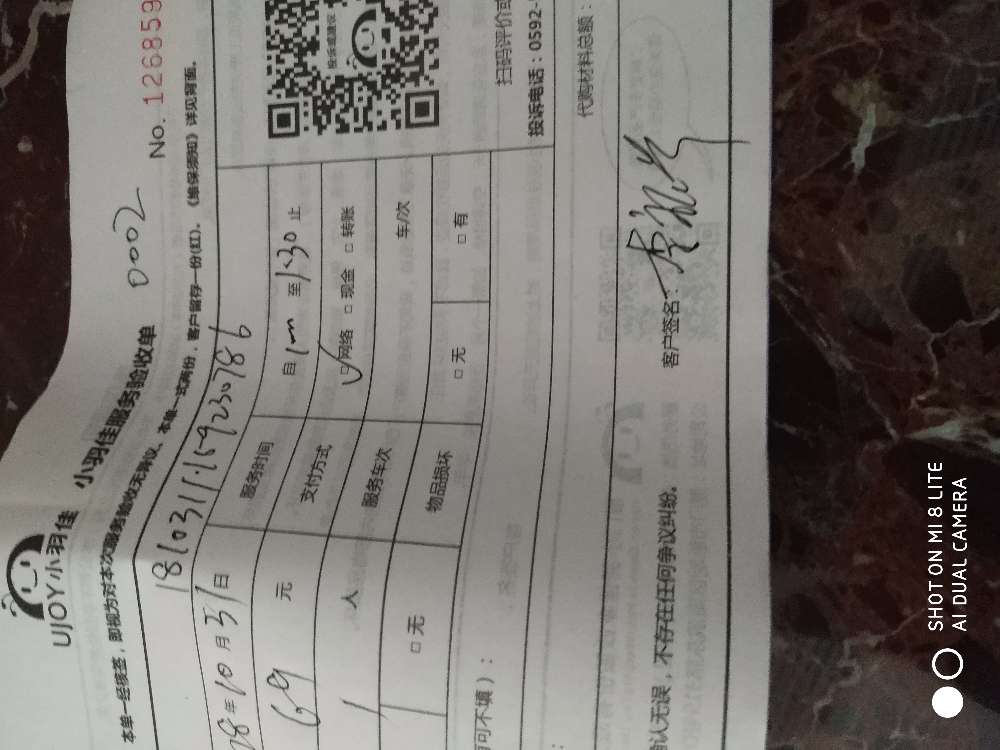 UJOY小羽佳
小羽佳服务验收单 0002 No. 126859
本单一经接签，即视为对本次服务验收无异议。本单一式两份，客户留存一份(红)。《维保须知》详见背面。
18年10月31日 服务时间 自 至 1:30 止
69 元 支付方式 ☑网络 □现金 □转账
1 人 服务车次 车/次
□无 物品损坏 □无 □有
可不填）：
扫码评价或
投诉电话：0592-
代购材料总额：
确认无误，不存在任何争议纠纷。 客户签名：
SHOT ON MI 8 LITE
AI DUAL CAMERA